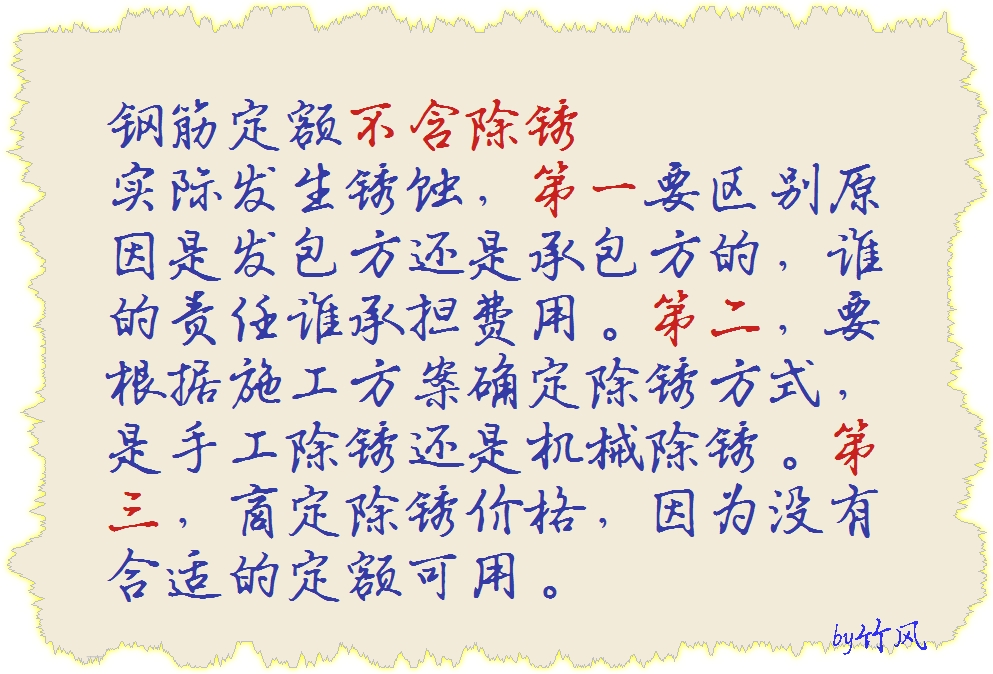 钢筋定额不含除锈
实际发生锈蚀，第一要区别原
因是发包方还是承包方的，谁
的责任谁承担费用。第二，要
根据施工方案确定除锈方式，
是手工除锈还是机械除锈。第
三，商定除锈价格，因为没有
合适的定额可用。
by竹风